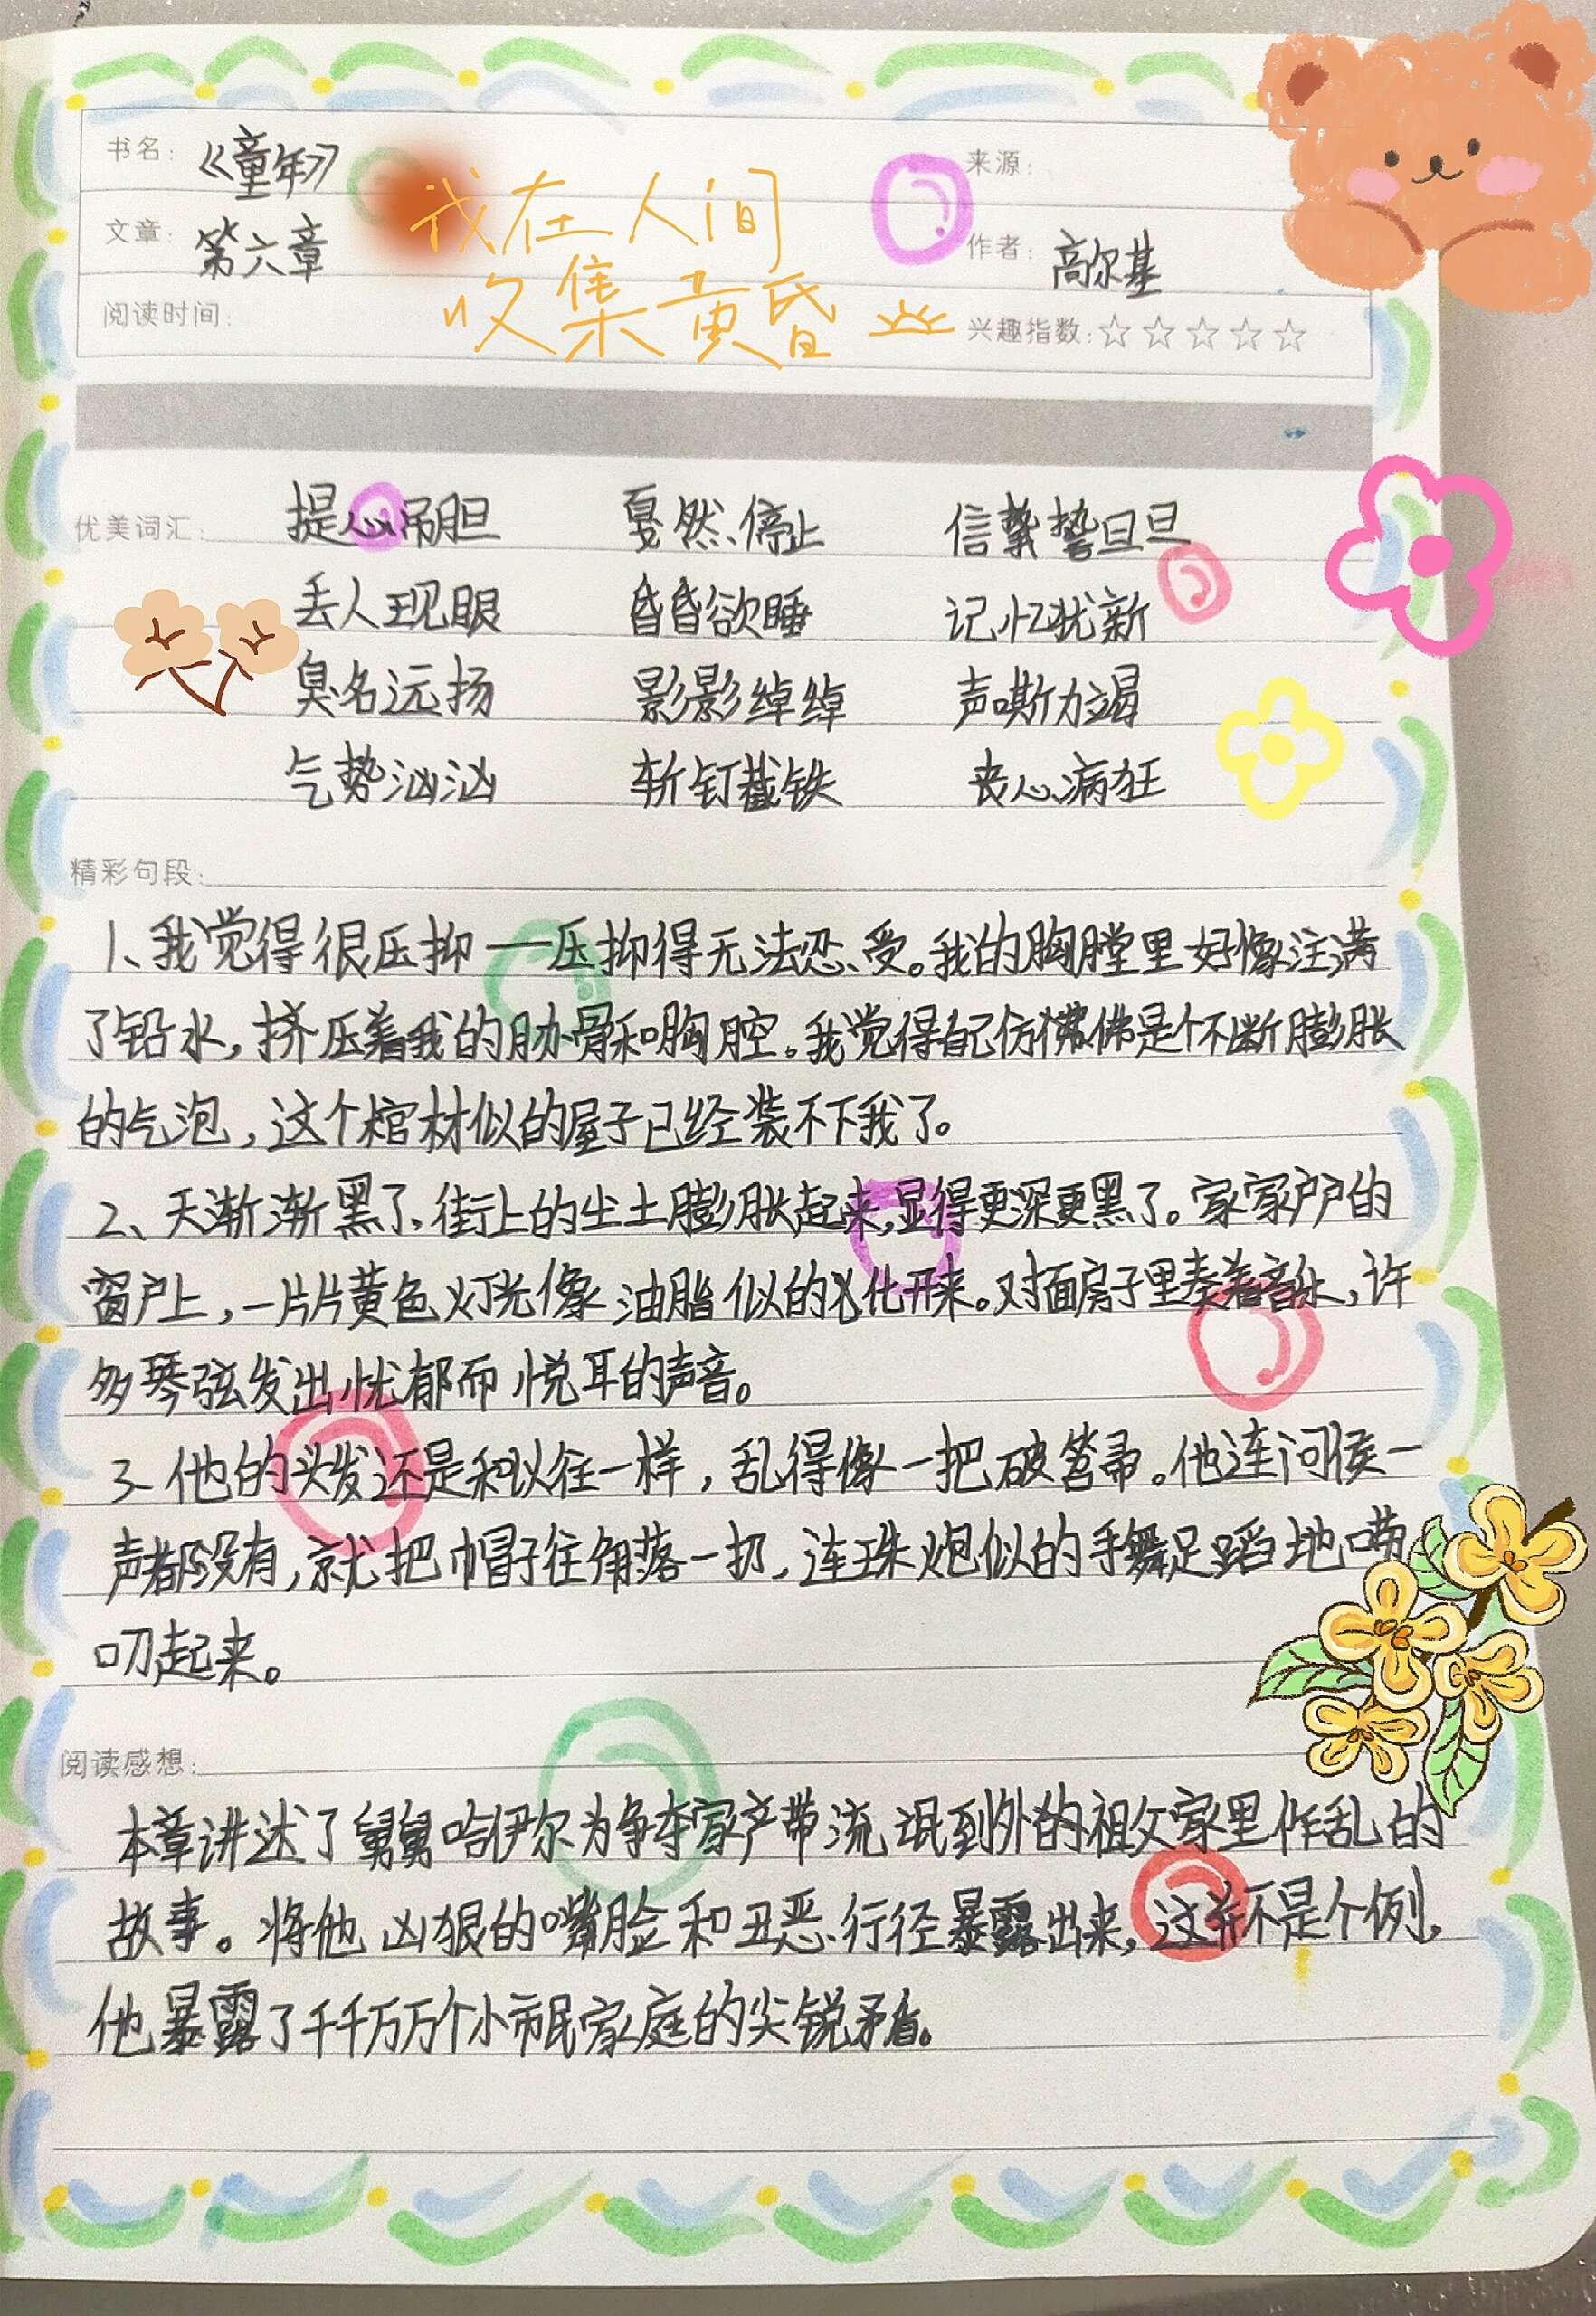 书名：《童年》
来源：
文章：第六章
作者：高尔基
我在人间
收集黄昏
阅读时间：
兴趣指数：☆☆☆☆☆
优美词汇：提心吊胆 戛然停止 信誓旦旦
丢人现眼 昏昏欲睡 记忆犹新
臭名远扬 影影绰绰 声嘶力竭
气势汹汹 斩钉截铁 丧心病狂
精彩句段：
1、我觉得很压抑——压抑得无法忍受。我的胸膛里好像注满
了铅水，挤压着我的肋骨和胸腔。我觉得自己仿佛是个不断膨胀
的气泡，这个棺材似的屋子已经装不下我了。
2、天渐渐黑了、街上的尘土膨胀起来，显得更深更黑了。家家户户的
窗户上，一片片黄色灯光像油脂似的化开来。对面房子里奏着音乐，许
多琴弦发出忧郁而悦耳的声音。
3、他的头发还是和以往一样，乱得像一把破笤帚。他连问候一
声都没有，就把帽子往角落一扔，连珠炮似的手舞足蹈地唠
叨起来。
阅读感想：
本章讲述了舅舅哈伊尔为争夺家产带流氓到外的祖父家里作乱的
故事。将他凶狠的嘴脸和丑恶行径暴露出来，这并不是个例，
他暴露了千千万万个小市民家庭的尖锐矛盾。